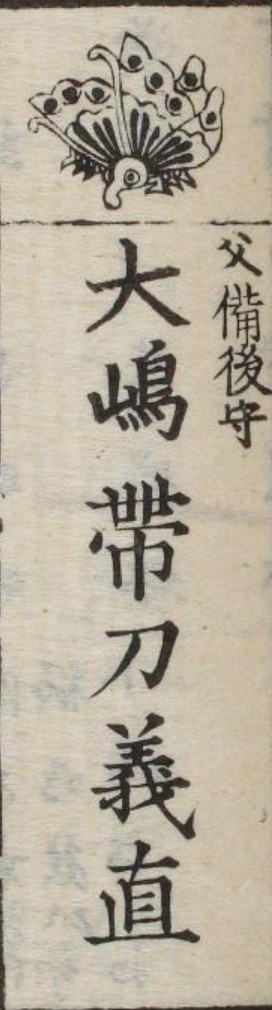 父備後守
大嶋帯刀義直